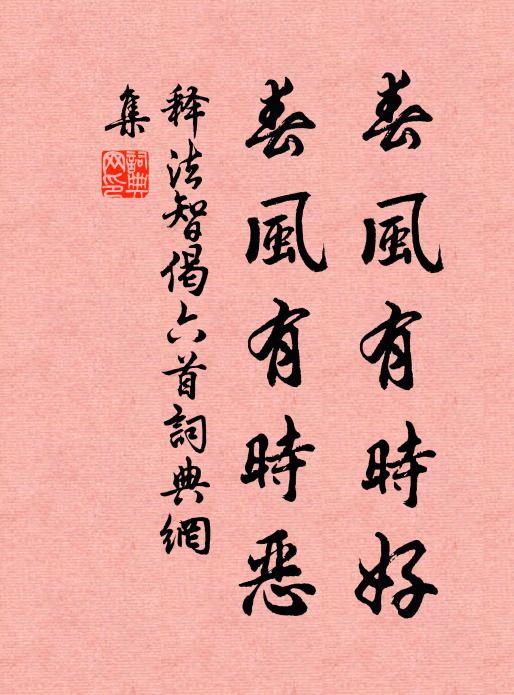 春風有時好
春風有時恶
释法智偈六首詞典網
集
詞典網印